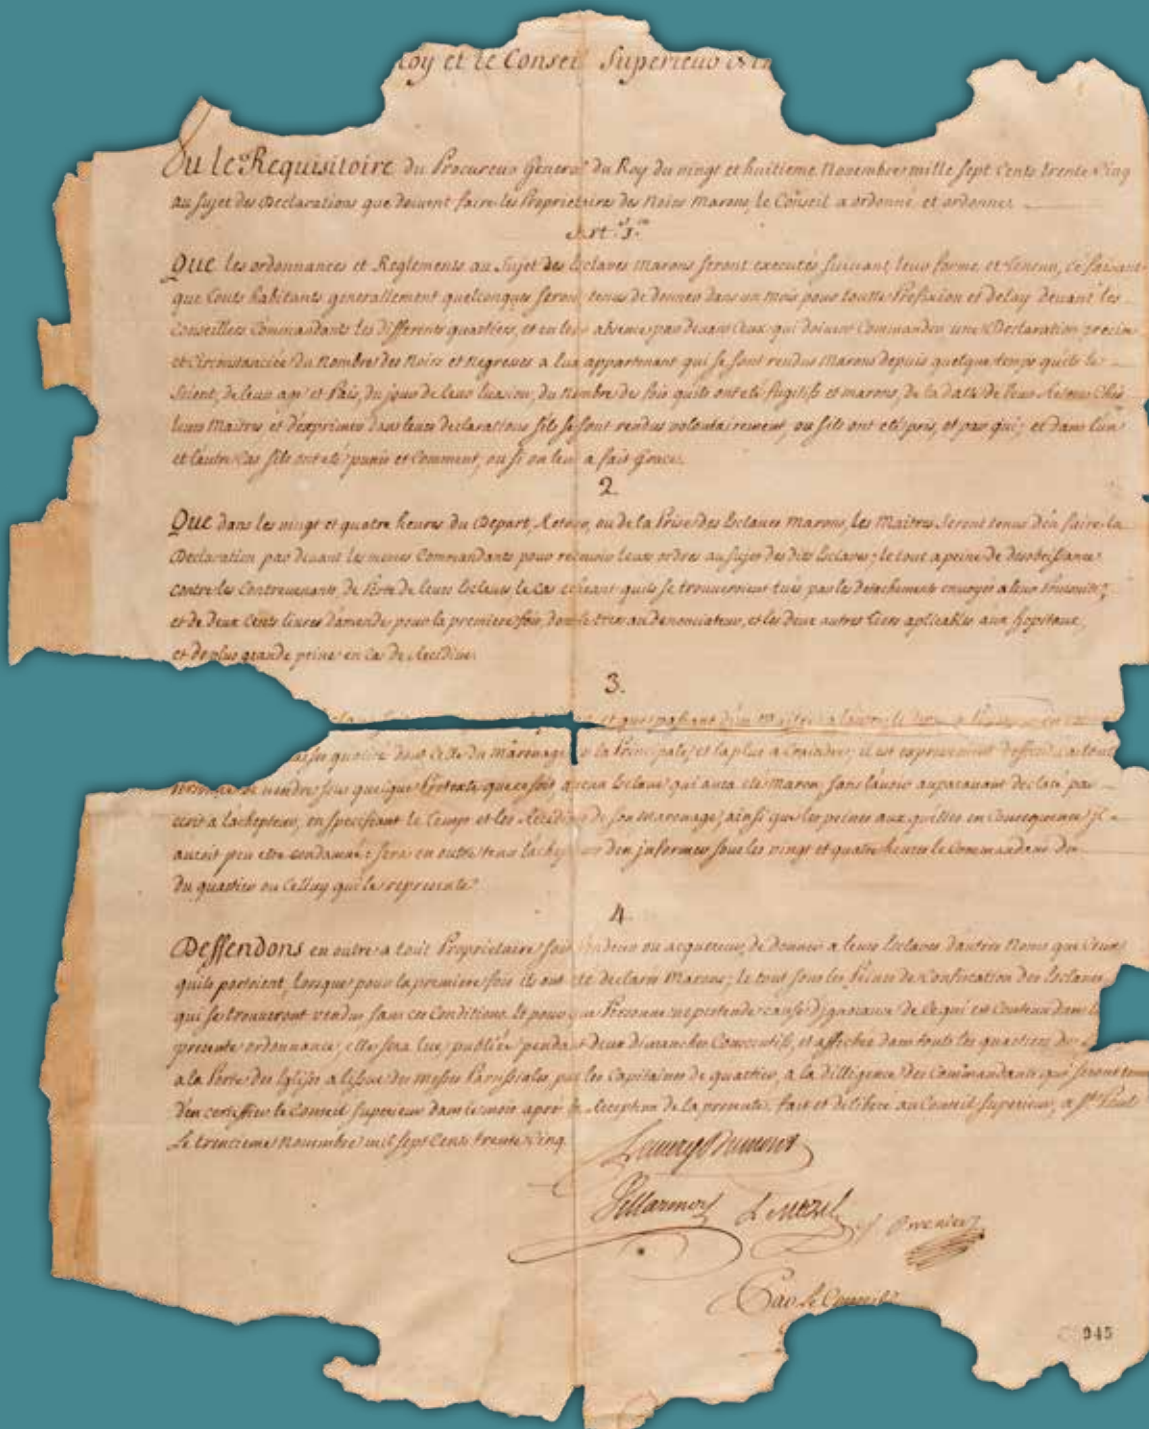 Roy et le Conseil Superieur
Vu le Requisitoire du Procureur General du Roy du vingt et huitieme Novembre mille sept Cents trente Cinq
au sujet des Declarations que doivent faire les Proprietaires des Noirs Marons, le Conseil a ordonné et ordonne
Art. 1.
Que les ordonnances et Reglements au Sujet des Esclaves Marons seront executés suivant leur forme et teneur, ce faisant
que touts habitants generallement quelconques seront tenus de donner dans un mois pour toutte Prefixion et delay devant les
Conseillers Commandants les differents quartiers, et en leur absence par devant Ceux qui doivent Commander une Declaration precise
et Circonstanciée du Nombre des Noirs et Negresses a eux appartenant qui se sont rendus Marons depuis quelque temps qu'ils le
soient, de leur age et Païs, du jour de leur Evasion, du Nombre de fois qu'ils ont eté fugitifs et marons, de la datte de leur Retour Chés
leurs Maitres, et d'exprimer dans leurs declarations s'ils se sont rendus volontairement, ou s'ils ont eté pris, et par qui; et dans l'un
et l'autre Cas s'ils ont eté punis et Comment, ou si on leur a fait grace.
2.
Que dans les vingt et quatre heures du Depart, Retour, ou de la Prise des Esclaves Marons, les Maitres seront tenus d'en faire la
Declaration par devant les memes Commandants pour recevoir leurs ordres au sujet des dits Esclaves; le tout a peine de desobeissance
contre les Contrevenants, de Perte de leurs Esclaves le Cas echeant qu'ils se trouveroient tués par les detachements envoyés a leur Poursuitte,
et de deux Cents livres d'amende pour la premiere fois, dont le tiers au denonciateur, et les deux autres tiers aplicables aux hopitaux,
et de plus grande peine en Cas de Recidive.
3.
et que passant d'un Maitre a l'autre
qualité dont Celle du maronage la Principale, et la plus a Craindre, il est expressement deffendu a tout
de vendre sous quelque Pretexte que ce soit, aucun Esclave qui aura eté Maron, sans l'avoir auparavant declaré par
ecrit a l'achepteur, en specifiant le temps et les Recidives de son Maronage, ainsi que les peines aux quelles en Consequence il
auroit peu etre condamné; sera en outre tenu d'en informer sous les vingt et quatre heures le Commandant
du quartier ou Celluy qui le represente.
4.
Deffendons en outre a tout Proprietaire soit Vendeur ou acquereur, de donner a leurs Esclaves d'autres Noms que Ceux
qu'ils portoient, lorsque pour la premiere fois ils ont eté declarés Marons; le tout sous les Peines de Confiscation des Esclaves
qui se trouveront vendus sans ces Conditions. Et pour que Personne ne pretende cause d'ignorance de Ce qui est Contenu dans la
presente ordonnance, elle sera lue, publiée pendant deux dimanches Consecutifs, et affichée dans touts les quartiers
a la Porte des Eglises a l'issue des Messes Parroissiales, par les Capitaines de quartier, a la dilligence des Commandants qui seront tenus
d'en certiffier le Conseil Superieur dans le mois apres la Reception de la presente. fait et deliberé au Conseil Superieur, a St. Paul
Le trentieme Novembre mil sept Cents trente Cinq.
Lemery Dumont
Villarmoy
Par Le Conseil
945